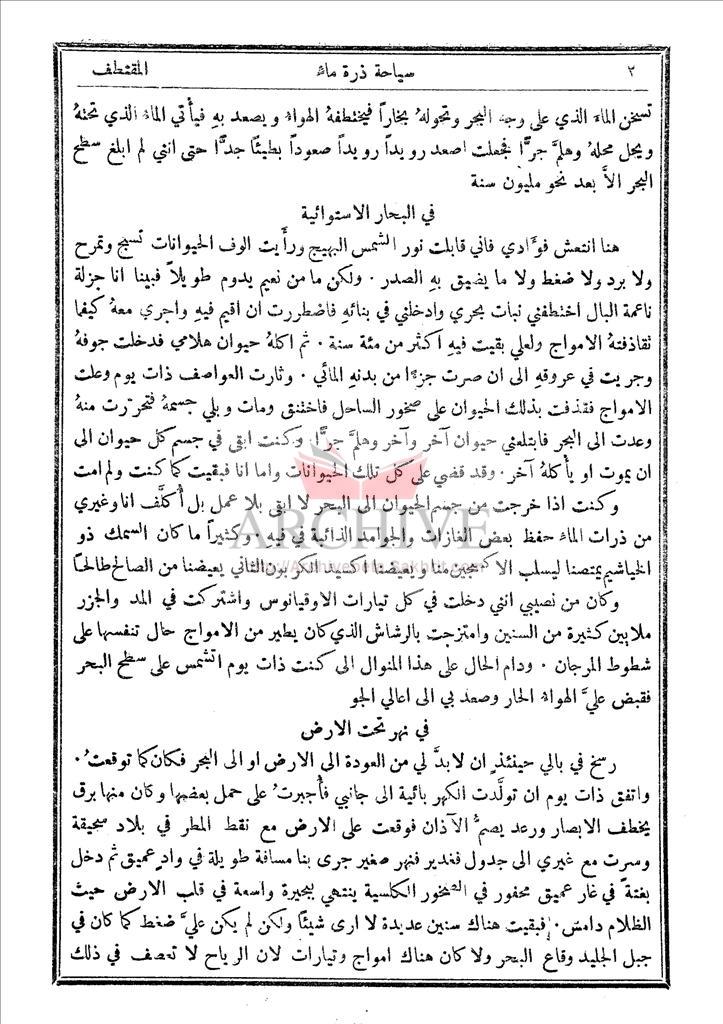 ٢ سياحة ذرة ماء المقتطف
تسخن الماء الذي على وجه البحر وتحوله بخاراً فيختطفهُ الهواء ويصعد بهِ فيأتي الماء الذي تحتهُ
ويحل محلهُ وهلمَّ جرًّا فجعلت اصعد رويداً رويداً صعوداً بطيئاً جدًّا حتى انني لم ابلغ سطح
البحر الاَّ بعد نحو مليون سنة
في البحار الاستوائية
هنا انتعش فوَّادي فاني قابلت نور الشمس البهيج ورأَيت الوف الحيوانات تسبح وتمرح
ولا برد ولا ضغط ولا ما يضيق بهِ الصدر . ولكن ما من نعيم يدوم طويلاً فبينا انا جزلة
ناعمة البال اختطفني نبات بحري وادخلني في بنائهِ فاضطررت ان اقيم فيهِ واجري معهُ كيفما
تقاذفتهُ الامواج ولعلي بقيت فيهِ اكثر من مئة سنة . ثم اكلهُ حيوان هلامي فدخلت جوفهُ
وجريت في عروقهِ الى ان صرت جزءًا من بدنهِ المائي . وثارت العواصف ذات يوم وعلت
الامواج فقذفت بذلك الحيوان على صخور الساحل فاختنق ومات وبلي جسمهُ فتحررت منهُ
وعدت الى البحر فابتلعني حيوان آخر وآخر وهلمَّ جرًّا وكنت ابقى في جسم كل حيوان الى
ان يموت او يأكلهُ آخر . وقد قضي على كل تلك الحيوانات واما انا فبقيت كما كنت ولم امت
وكنت اذا خرجت من جسم الحيوان الى البحر لا ابقى بلا عمل بل أكلَّف انا وغيري
من ذرات الماء حفظ بعض الغازات والجوامد الذائبة في فيهِ . وكثيراً ما كان السمك ذو
الخياشيم يمتصنا ليسلب الاكسجين منا ويعيضنا اكسيد الكربون الثاني يعيضنا من الصالح طالحاً
وكان من نصيبي انني دخلت في كل تيارات الاوقيانوس واشتركت في المد والجزر
ملايين كثيرة من السنين وامتزجت بالرشاش الذي كان يطير من الامواج حال تنفسها على
شطوط المرجان . ودام الحال على هذا المنوال الى كنت ذات يوم اتشمس على سطح البحر
فقبض عليَّ الهواء الحار وصعد بي الى اعالي الجو
في نهر تحت الارض
رسخ في بالي حينئذٍ ان لا بدَّ لي من العودة الى الارض او الى البحر فكان كما توقعتُ .
واتفق ذات يوم ان تولَّدت الكهربائية الى جانبي فأُجبرتُ على حمل بعضها وكان منها برق
يخطف الابصار ورعد يصمُّ الآذان فوقعت على الارض مع نقط المطر في بلاد سحيقة
وسرت مع غيري الى جدول فغدير فنهر صغير جرى بنا مسافة طويلة في وادٍ عميق ثم دخل
بغتةً في غار عميق محفور في الصخور الكلسية ينتهي ببحيرة واسعة في قلب الارض حيث
الظلام دامس . فبقيت هناك سنين عديدة لا ارى شيئاً ولكن لم يكن عليَّ ضغط كما كان في
جبل الجليد وقاع البحر ولا كان هناك امواج وتيارات لان الرياح لا تعصف في ذلك
ARCHIVE